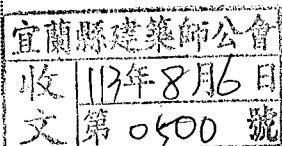 宜蘭縣建築師公會
收 113年8月6日
文 第0500號